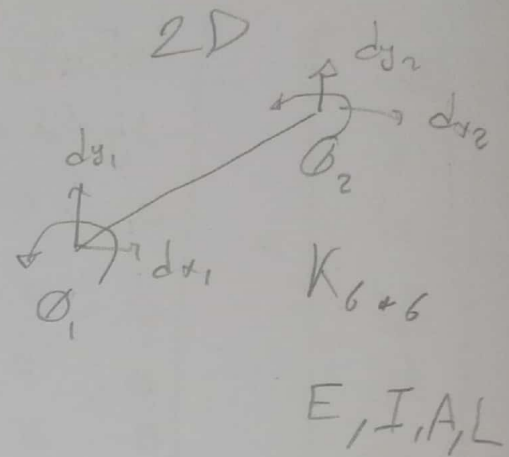 2D
dy₂
dx₂
Ø₂
dy₁
dx₁
Ø₁
K₆*₆
E, I, A, L